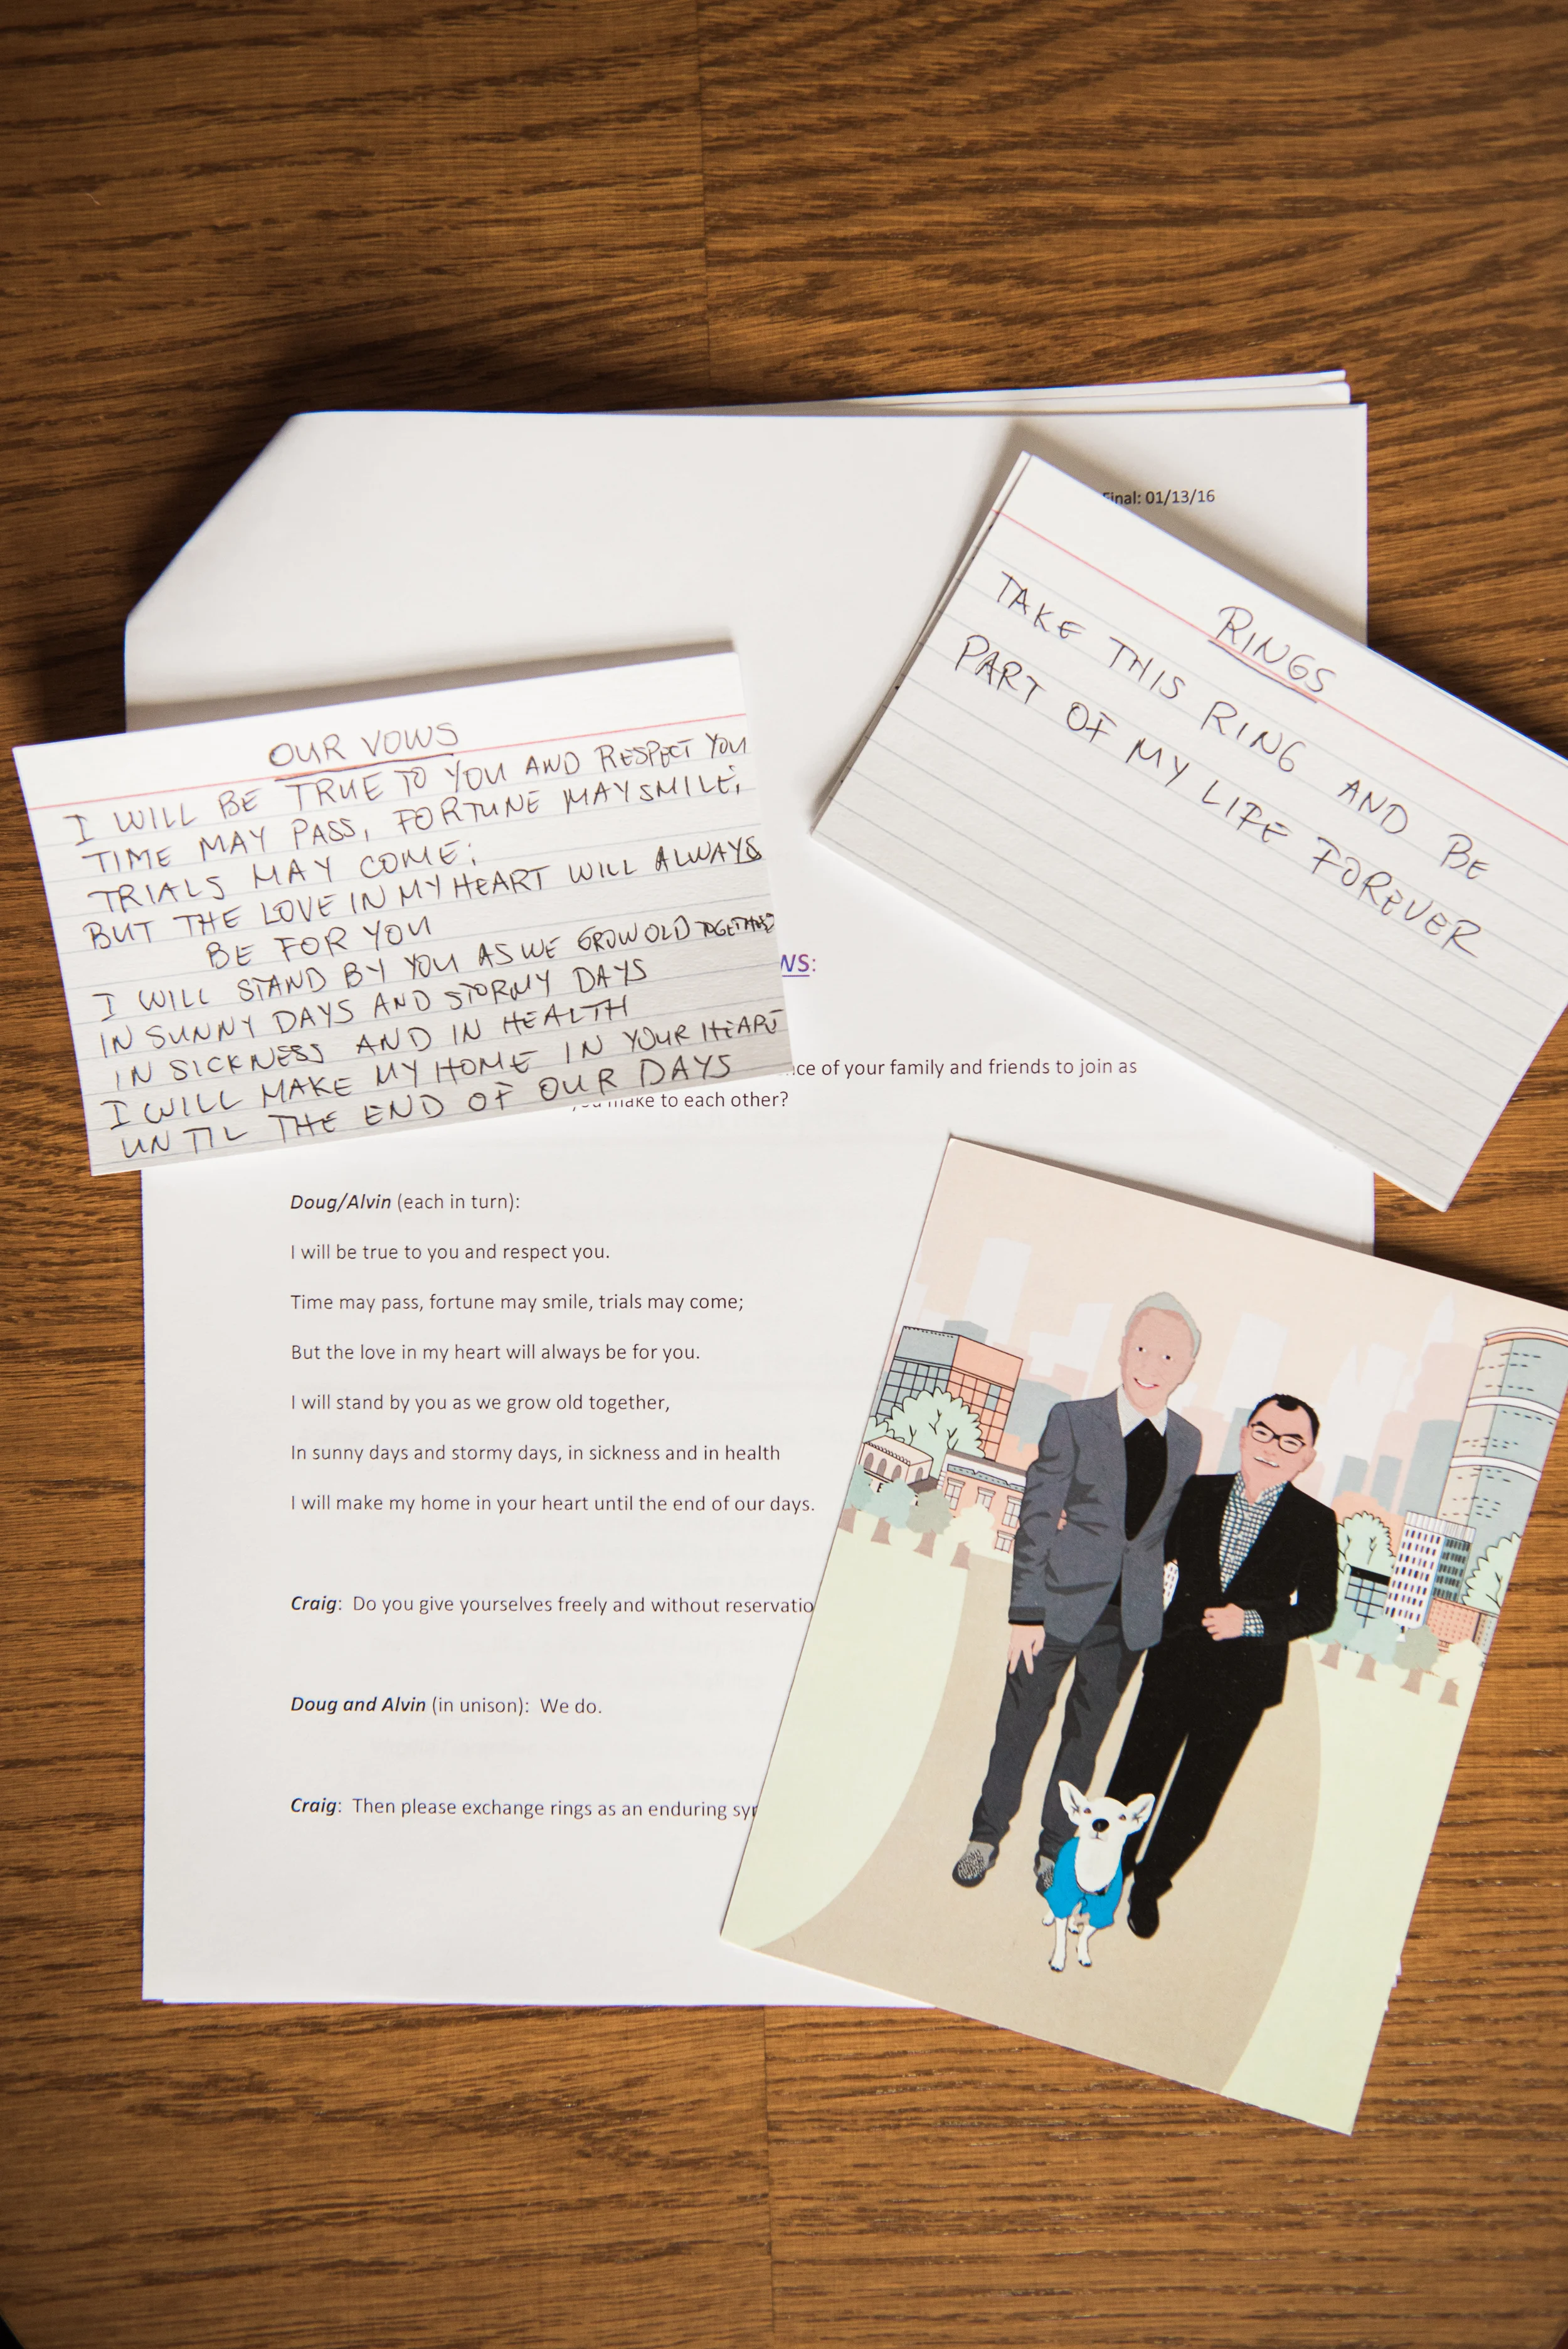 Final: 01/13/16
RINGS
TAKE THIS RING AND BE
PART OF MY LIFE FOREVER
OUR VOWS
I WILL BE TRUE TO YOU AND RESPECT YOU
TIME MAY PASS, FORTUNE MAY SMILE,
TRIALS MAY COME;
BUT THE LOVE IN MY HEART WILL ALWAYS
BE FOR YOU
I WILL STAND BY YOU AS WE GROW OLD TOGETHER
IN SUNNY DAYS AND STORMY DAYS
IN SICKNESS AND IN HEALTH
I WILL MAKE MY HOME IN YOUR HEART
UNTIL THE END OF OUR DAYS
of your family and friends to join as
make to each other?
Doug/Alvin (each in turn):
I will be true to you and respect you.
Time may pass, fortune may smile, trials may come;
But the love in my heart will always be for you.
I will stand by you as we grow old together,
In sunny days and stormy days, in sickness and in health
I will make my home in your heart until the end of our days.
Craig: Do you give yourselves freely and without reservatio
Doug and Alvin (in unison): We do.
Craig: Then please exchange rings as an enduring